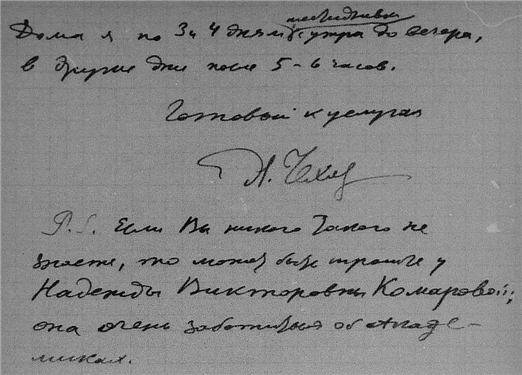 Дома я по 3 и 4 дням с утра до вечера,
в другие дни после 5-6 часов.
Готовый к услугам
А. Чехов
P.S. Если Вы никого такого не
знаете, то может быть спросите у
Надежды Викторовны Комаровой;
она очень заботится об Акаде-
миках.